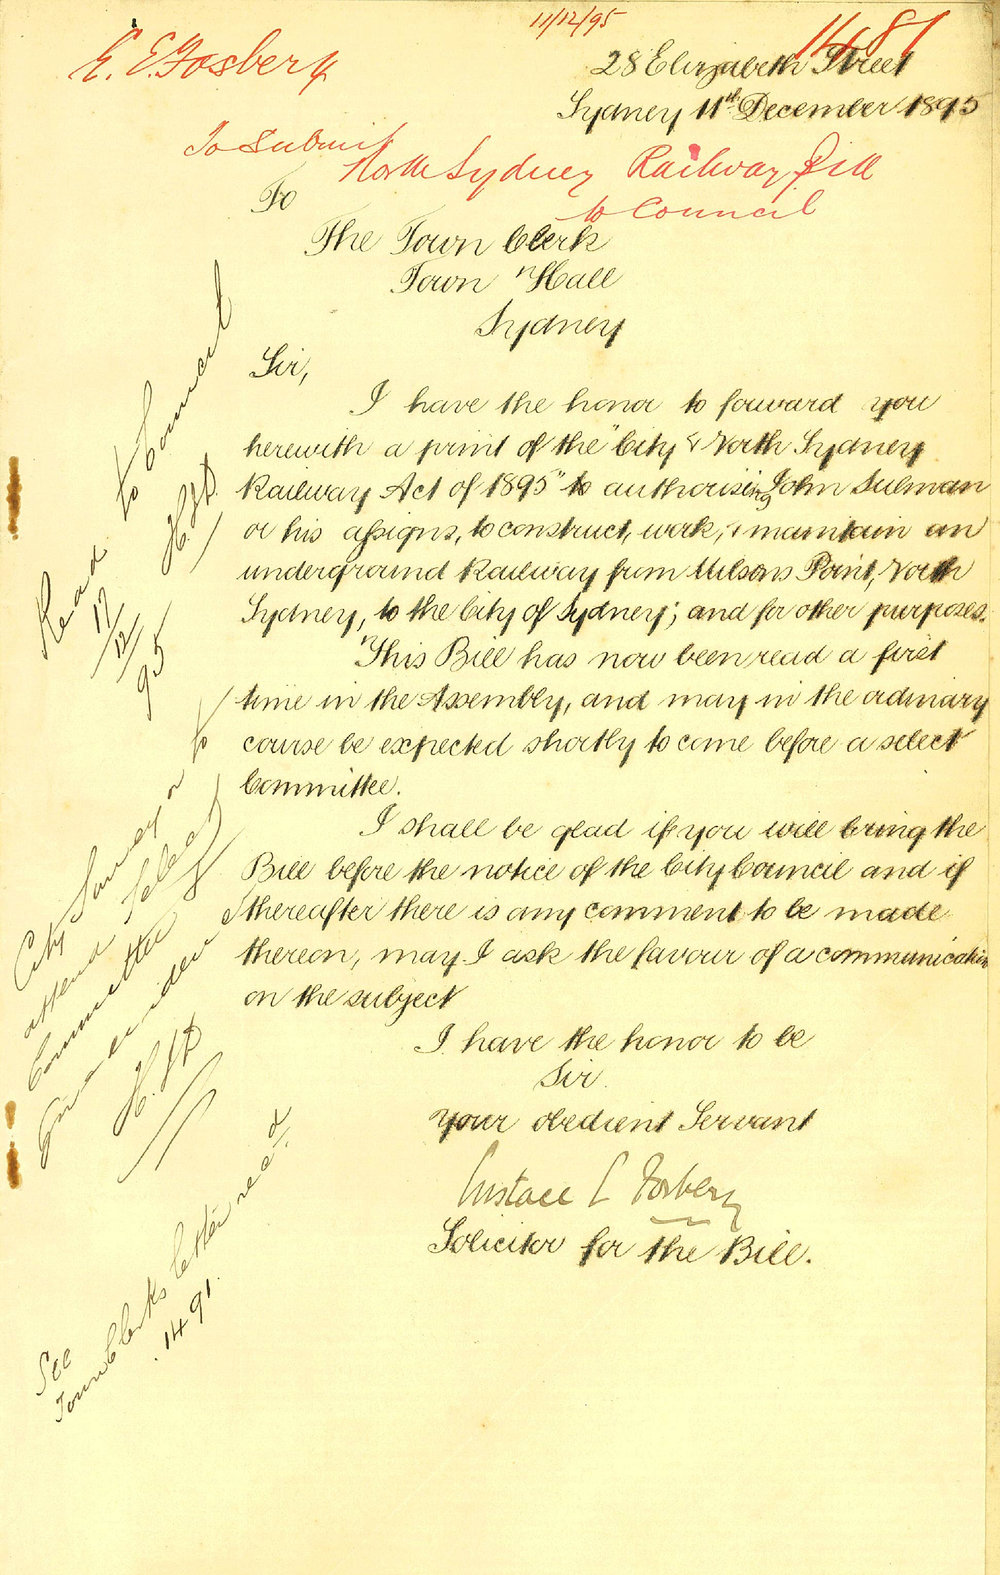 11/12/95
1487
E. E. Fosbery
28 Elizabeth Street
Sydney 11th December 1895
To Submit
North Sydney Railway Bill
to Council
To
The Town Clerk
Town Hall
Sydney
Sir,
I have the honor to forward you
herewith a print of the "City & North Sydney
Railway Act of 1895" to authorising John Sulman
or his assigns, to construct, work, & maintain an
underground Railway from Milsons Point, North
Sydney, to the City of Sydney; and for other purposes.
This Bill has now been read a first
time in the Assembly, and may in the ordinary
course be expected shortly to come before a select
Committee.
I shall be glad if you will bring the
Bill before the notice of the City Council and if
thereafter there is any comment to be made
thereon, may I ask the favour of a communication
on the subject
I have the honor to be
Sir.
Your obedient Servant
Eustace E Fosbery
Solicitor for the Bill.
Read
to Council
17/12/95
City Surveyor to
attend Select
Committee &
See
Town Clerks letter recd
1491.